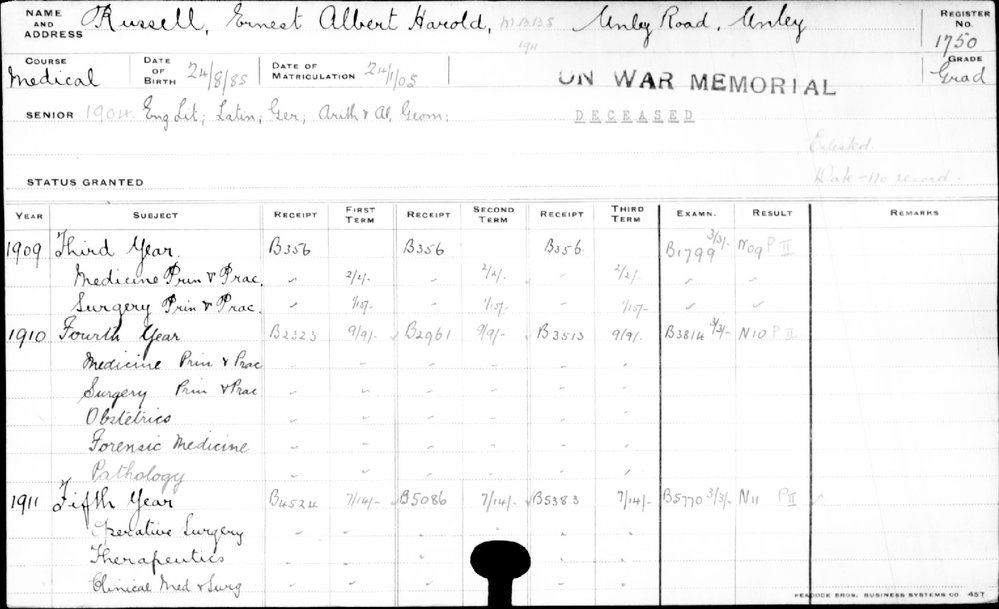 NAME AND ADDRESS Russell, Ernest Albert Harold, M.B.B.S 1911 Unley Road, Unley REGISTER No. 1750
COURSE Medical DATE OF BIRTH 24/8/85 DATE OF MATRICULATION 24/1/05 ON WAR MEMORIAL GRADE Grad
SENIOR 1904. Eng Lit; Latin; Ger; Arith & Al, Geom; DECEASED
Enlisted
Date - no record.
STATUS GRANTED
YEAR SUBJECT RECEIPT FIRST TERM RECEIPT SECOND TERM RECEIPT THIRD TERM EXAMN. RESULT REMARKS
1909 Third Year. B356 B356 B356 B1799 3/3/- N09 P II
Medicine Prin & Prac. " 2/2/. 2/2/. 2/2/. " "
Surgery Prin & Prac. " 1/15/- 1/15/- 1/15/- " "
1910 Fourth Year B2323 9/9/- B2961 9/9/- B3513 9/9/. B3814 3/3/- N10 P II
Medicine Prin & Prac
Surgery Prin & Prac
Obstetrics
Forensic Medicine
Pathology
1911 Fifth Year B4524 7/14/- B5086 7/14/- B5383 7/14/- B5770 3/3/- N11 P II
Operative Surgery
Therapeutics
Clinical Med & Surg
PEACOCK BROS. BUSINESS SYSTEMS CO. 457